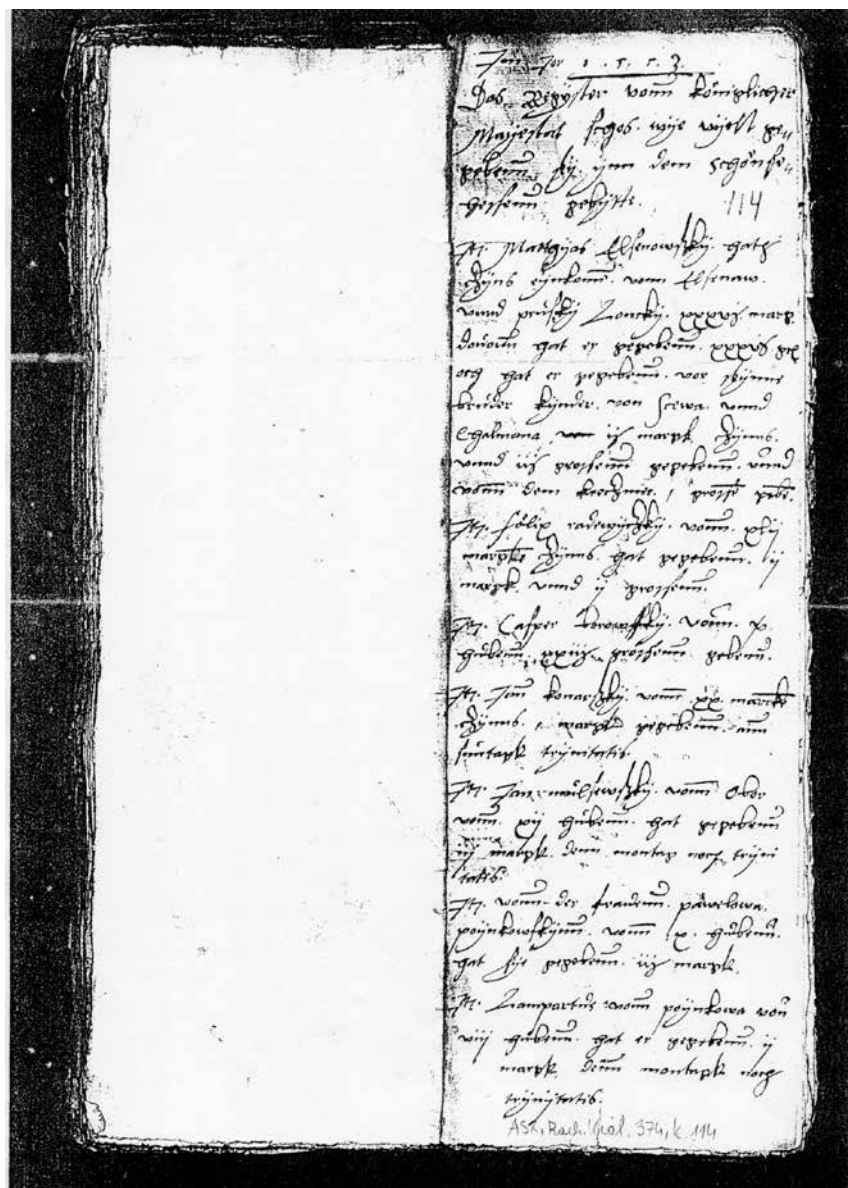 Jm Jor 1.5.5.3.
Das Regyster vonn königlicher
Mayjestat schos. wije vijell ge,,
gebenn sij ynn dem Schönse,,
gebijtte. 114
Jt. Mattyas Elsenowsskij hath
czijns eijnkome. vonn Elsenaw.
vnnd prusskij Lonckij. xxxvj marg.
dovonn hat er gegebenn. xxxvj
och hat er gegebenn. vor sijnne
bruder kijnder. von Scewa. vnnd
Chalmona ij margk. Zijnns.
vnnd iij grossenn gegebenn. vnnd
vonn dem kreczmer. j grosse
Jt. Felix vonn. xlij
margke czijnns. hat gegebenn. ij
margk. vnnd ij grossenn.
Jt. Casper vonn. x.
hubenn. grossenn gebenn.
Jt. Jan konarsskij. vonn xx. marcke
czijnns. j margk gegebenn. ann
suntagk trijnitatis.
Jt. Jan vonn Obor
vonn. xij hubenn. hat gegebenn
iij margk. denn montag noch trijni
tatis.
Jt. vonn der frauenn. pawelowa.
poijnkowskijnn. vonn x. hubenn.
hat sije gegebenn. iij margk.
Jt. Lampartus vonn poijnkowa von
viij hubenn. hat er gegebenn. ij
margk. denn montagk noch
trijnijtatis.
ASK, Rach. Król. 374, k. 114